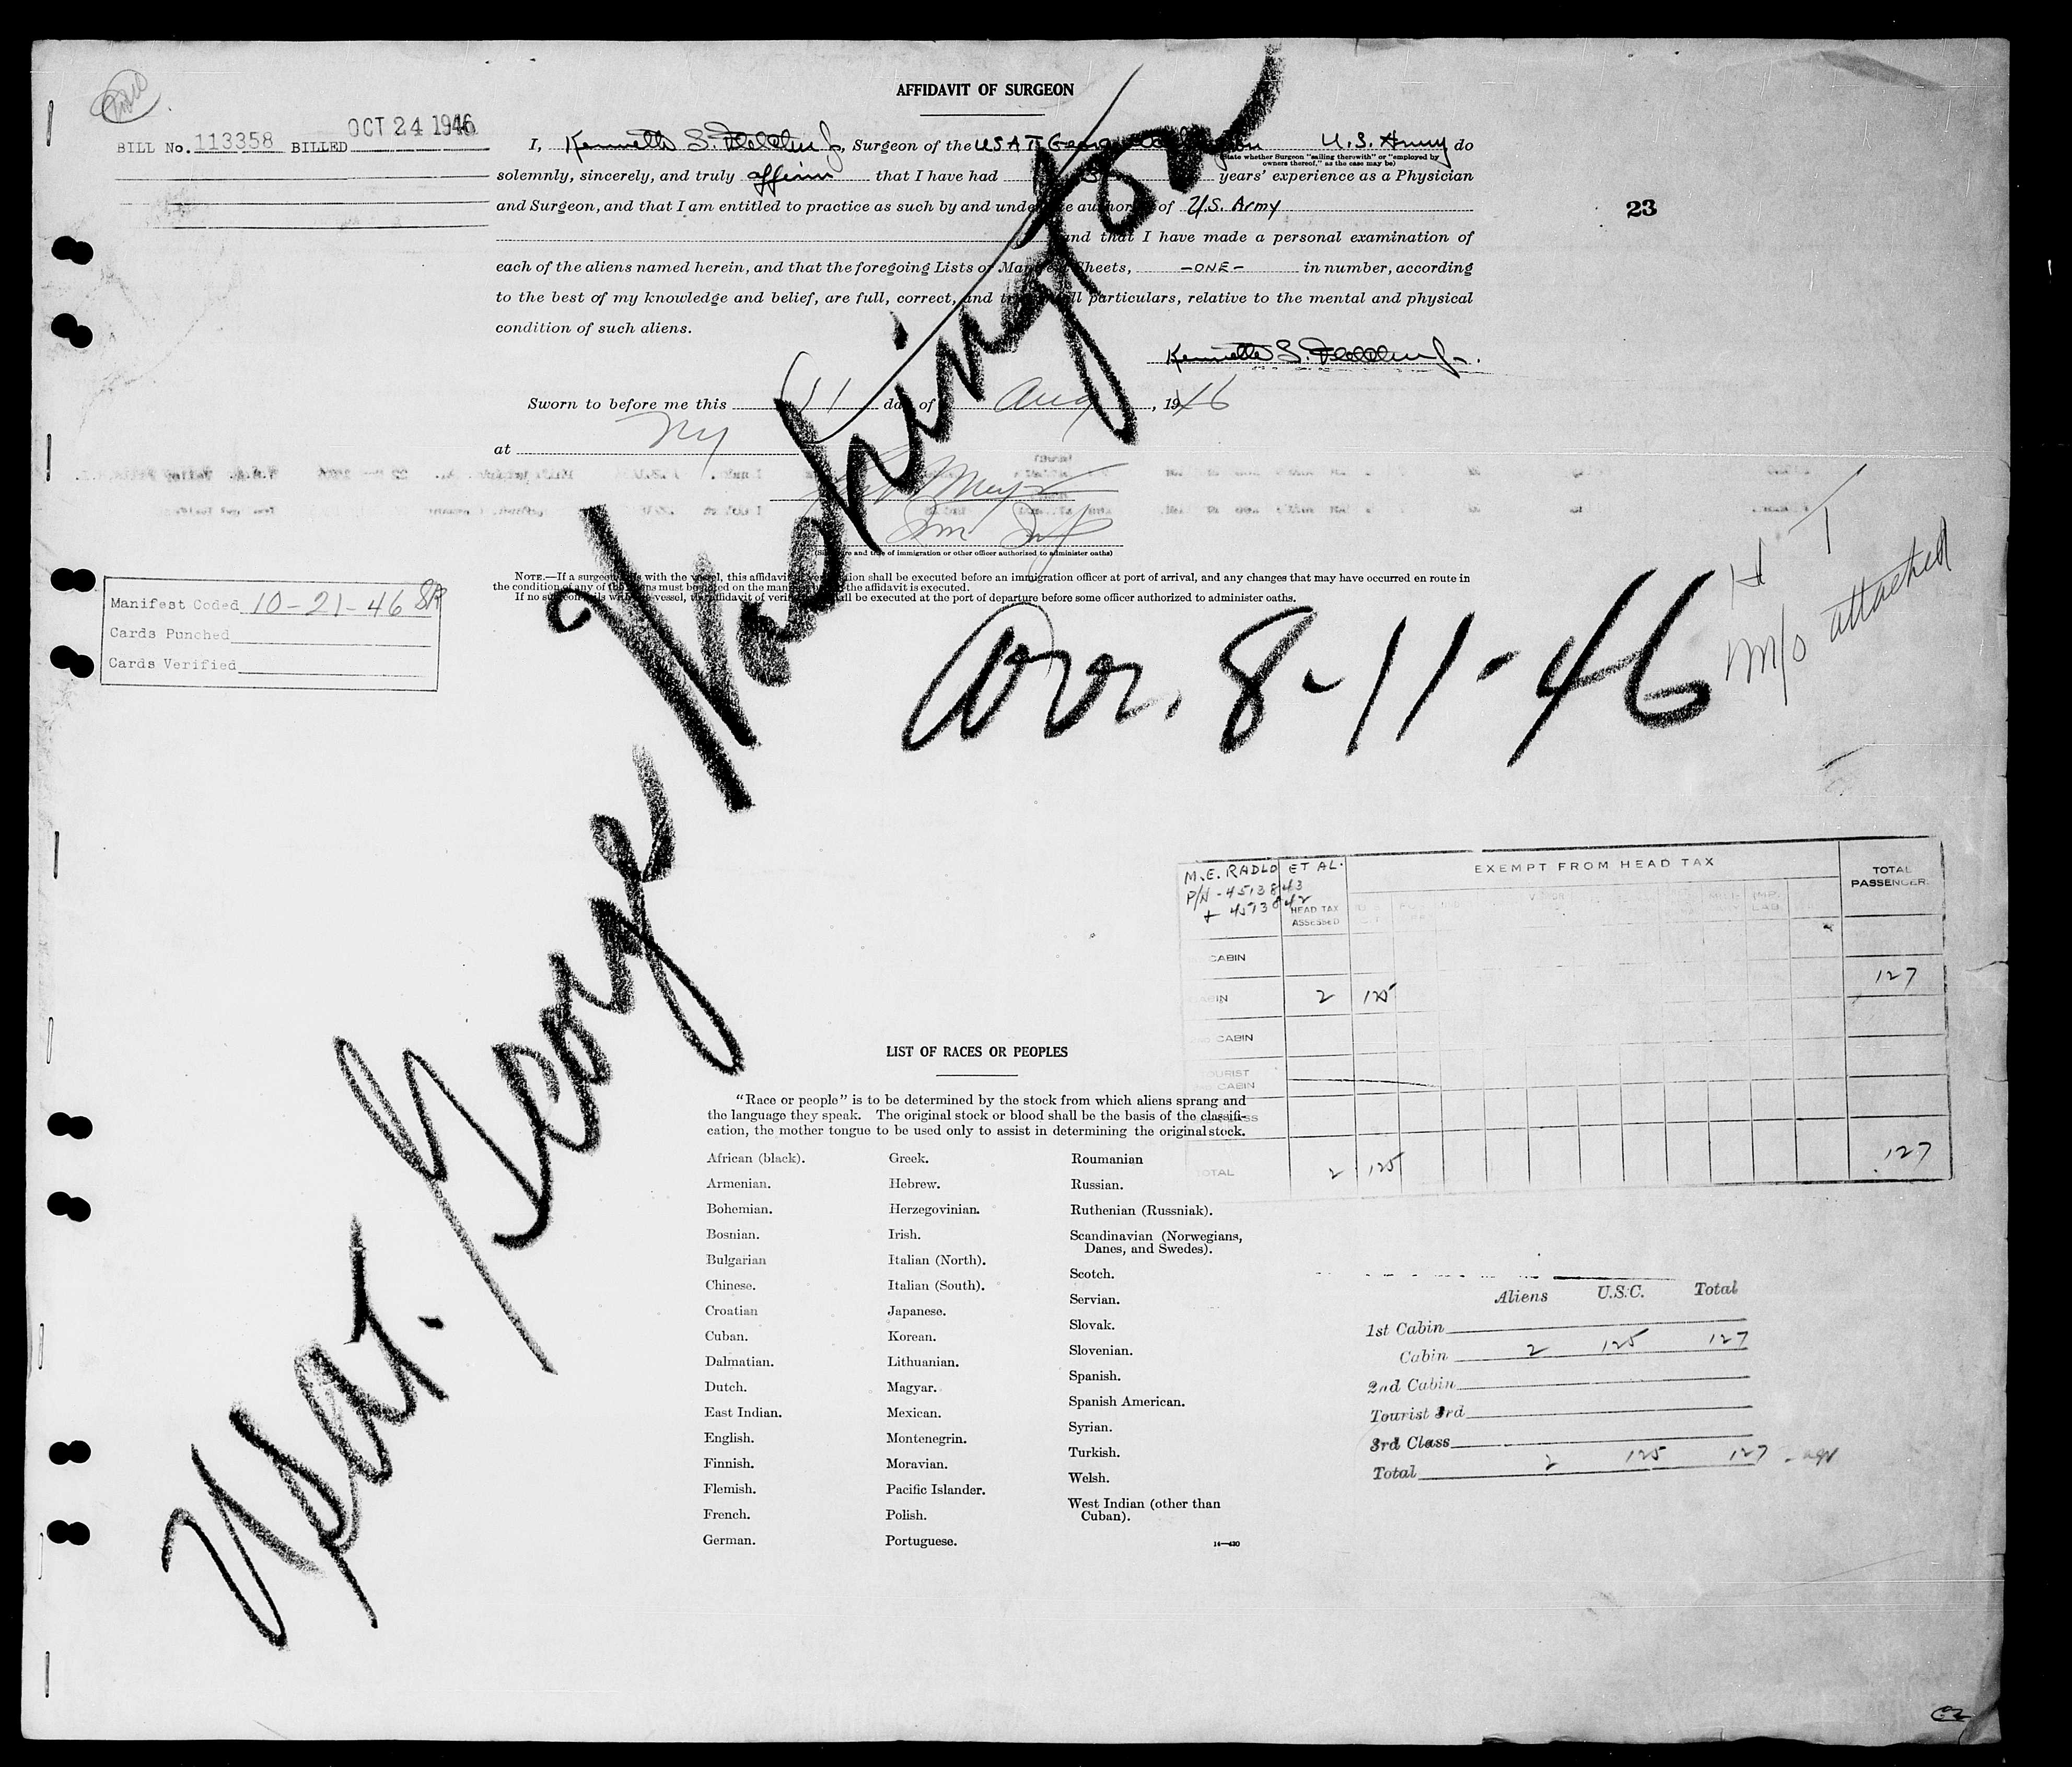 AFFIDAVIT OF SURGEON
BILL No. 113358 BILLED OCT 24 1946
I, Kenneth S. , Surgeon of the USAT George U.S. Army do
(State whether Surgeon "sailing therewith" or "employed by owners thereof," as the case may be)
solemnly, sincerely, and truly affirm that I have had years' experience as a Physician
and Surgeon, and that I am entitled to practice as such by and under the authority of U.S. Army
and that I have made a personal examination of
each of the aliens named herein, and that the foregoing Lists or Manifest Sheets, -ONE- in number, according
to the best of my knowledge and belief, are full, correct, and true in all particulars, relative to the mental and physical
condition of such aliens.
Kenneth S.
23
Sworn to before me this 11 day of Aug, 1946
at NY
(Signature and title of immigration or other officer authorized to administer oaths)
NOTE.—If a surgeon sails with the vessel, this affidavit of verification shall be executed before an immigration officer at port of arrival, and any changes that may have occurred en route in
the condition of any of the aliens must be noted on the manifest before the affidavit is executed.
If no surgeon sails with the vessel, this affidavit of verification shall be executed at the port of departure before some officer authorized to administer oaths.
Manifest Coded 10-21-46 SR
Cards Punched
Cards Verified
Usat. George Washington
Arr. 8-11-46
H T
M/o attached
M.E. RADLO ET AL.
P/N - 4513843
+ 4513842
HEAD TAX ASSESSED
EXEMPT FROM HEAD TAX
TOTAL PASSENGER
CABIN
CABIN 2 125 127
CABIN
TOURIST
CABIN
TOTAL 2 125 127
LIST OF RACES OR PEOPLES
"Race or people" is to be determined by the stock from which aliens sprang and
the language they speak. The original stock or blood shall be the basis of the classifi-
cation, the mother tongue to be used only to assist in determining the original stock.
African (black).
Armenian.
Bohemian.
Bosnian.
Bulgarian
Chinese.
Croatian
Cuban.
Dalmatian.
Dutch.
East Indian.
English.
Finnish.
Flemish.
French.
German.
Greek.
Hebrew.
Herzegovinian.
Irish.
Italian (North).
Italian (South).
Japanese.
Korean.
Lithuanian.
Magyar.
Mexican.
Montenegrin.
Moravian.
Pacific Islander.
Polish.
Portuguese.
Roumanian
Russian.
Ruthenian (Russniak).
Scandinavian (Norwegians,
Danes, and Swedes).
Scotch.
Servian.
Slovak.
Slovenian.
Spanish.
Spanish American.
Syrian.
Turkish.
Welsh.
West Indian (other than
Cuban).
Aliens U.S.C. Total
1st Cabin
Cabin 2 125 127
2nd Cabin
Tourist 3rd
3rd Class
Total 2 125 127